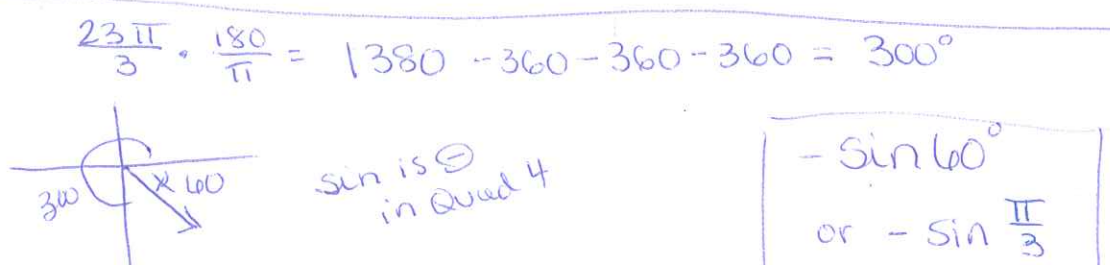 23π/3 · 180/π = 1380 - 360 - 360 - 360 = 300°
300
60
sin is ⊖
in Quad 4
- Sin 60°
or - Sin π/3